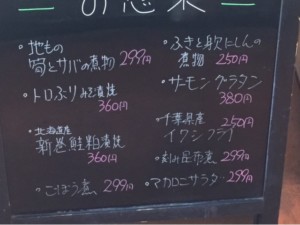 お惣菜
・地もの
筍とサバの煮物 299円
・トロぶりみそ漬焼
360円
・北海道産
新巻鮭粕漬焼
360円
・ごぼう煮 299円
・ふきと身欠にしんの
煮物 250円
・サーモングラタン
380円
・千葉県産 250円
イワシフライ
・刻み昆布煮 299円
・マカロニサラダ 299円